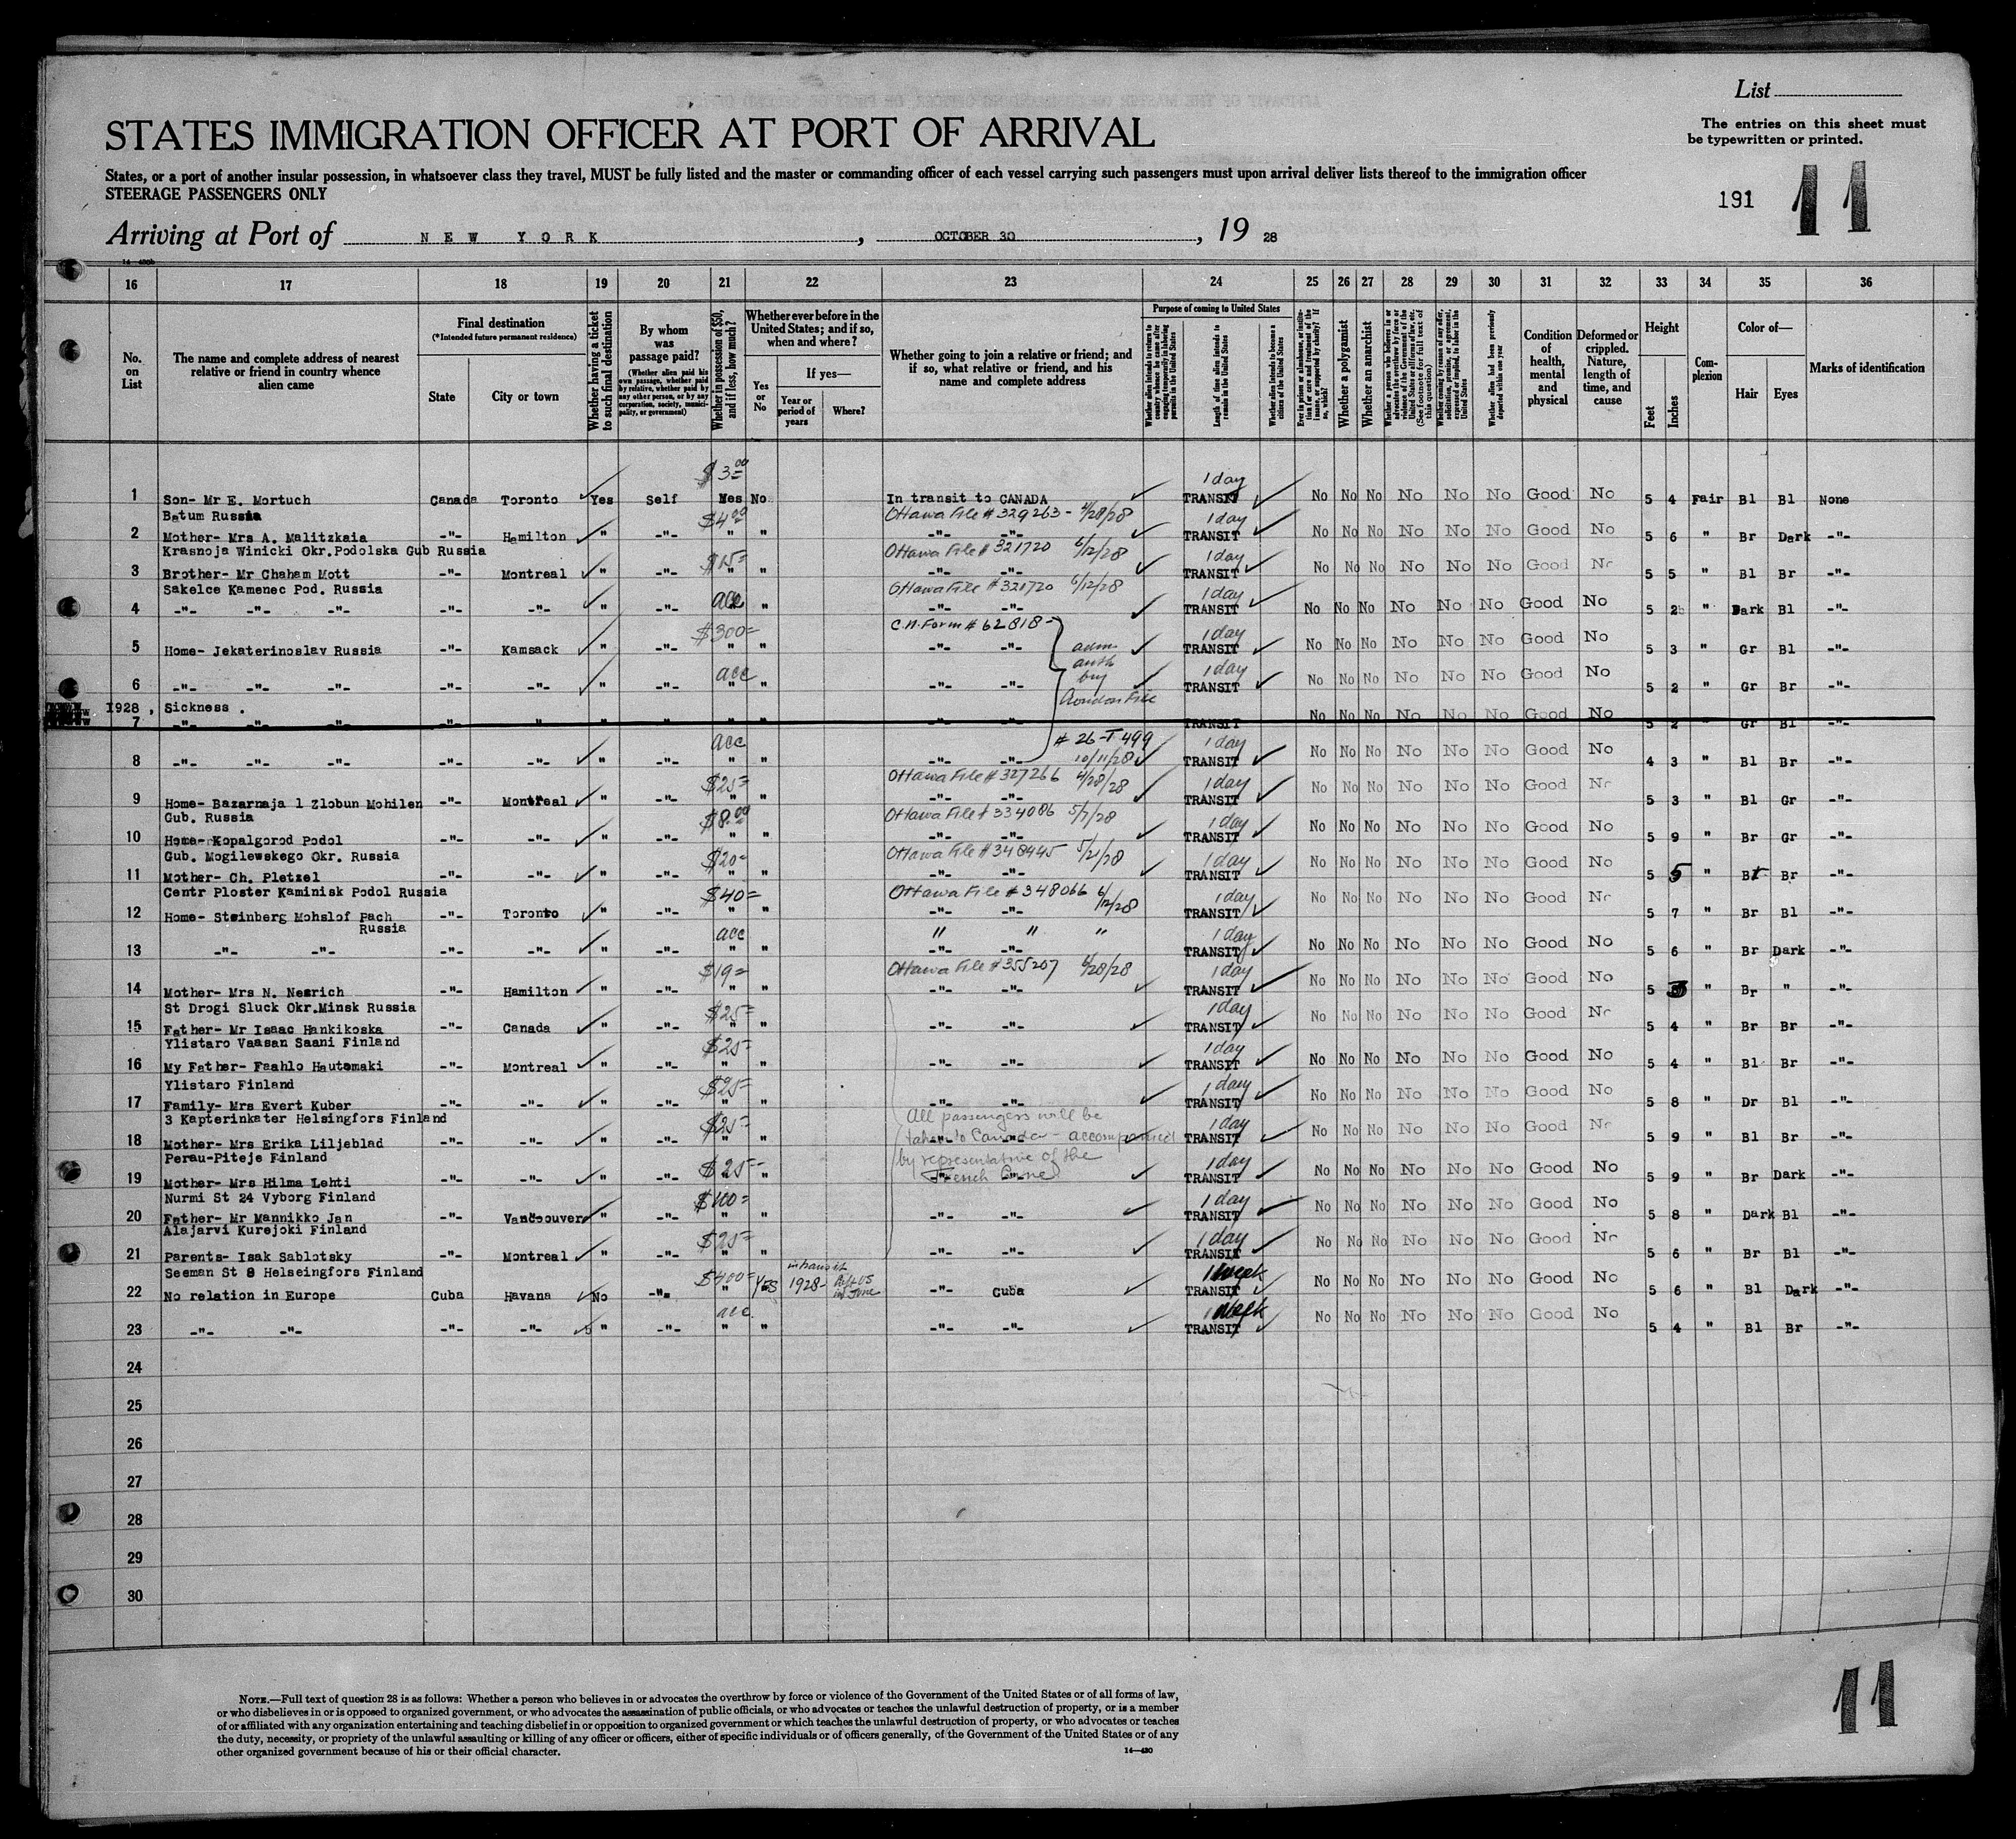 List
The entries on this sheet must
be typewritten or printed.
STATES IMMIGRATION OFFICER AT PORT OF ARRIVAL
States, or a port of another insular possession, in whatsoever class they travel, MUST be fully listed and the master or commanding officer of each vessel carrying such passengers must upon arrival deliver lists thereof to the immigration officer
STEERAGE PASSENGERS ONLY
191 11
Arriving at Port of NEW YORK, OCTOBER 30, 19 28
16 17 18 19 20 21 22 23 24 25 26 27 28 29 30 31 32 33 34 35 36
No. on List
The name and complete address of nearest relative or friend in country whence alien came
Final destination
(*Intended future permanent residence)
State City or town
Whether having a ticket to such final destination
By whom was passage paid?
(Whether alien paid his own passage, whether paid by relative, whether paid by any other person, or by any corporation, society, municipality, or government)
Whether in possession of $50, and if less, how much?
Whether ever before in the United States; and if so, when and where?
Yes or No
If yes—
Year or period of years
Where?
Whether going to join a relative or friend; and if so, what relative or friend, and his name and complete address
Purpose of coming to United States
Whether alien intends to return to country whence he came after engaging temporarily in laboring pursuits in the United States
Length of time alien intends to remain in the United States
Whether alien intends to become a citizen of the United States
Whether a polygamist
Whether an anarchist
Whether alien had been previously deported within one year
Condition of health, mental and physical
Deformed or crippled. Nature, length of time, and cause
Height
Feet Inches
Complexion
Color of—
Hair Eyes
Marks of identification
$3.00 1 day
1 Son- Mr E. Mortuch Canada Toronto Yes Self Yes No In transit to CANADA TRANSIT No No No No No No Good No 5 4 Fair Bl Bl None
Batum Russia $4.00 Ottawa File # 329263 - 4/28/28 1 day
2 Mother- Mrs A. Malitzkaia -"- Hamilton " -"- " " -"- -"- TRANSIT No No No No No No Good No 5 6 " Br Dark -"-
Krasnoja Winicki Okr.Podolska Gub Russia $15= Ottawa File # 321720 6/12/28 1 day
3 Brother- Mr Chaham Mott -"- Montreal " -"- " " -"- -"- TRANSIT No No No No No No Good No 5 5 " Bl Br -"-
Sakelce Kamenec Pod. Russia acc Ottawa File # 321720 6/12/28 1 day
4 -"- -"- -"- -"- -"- " -"- " " -"- -"- TRANSIT No No No No No No Good No 5 2 " Dark Bl -"-
$300= C.N. Form # 62818- 1 day
5 Home- Jekaterinoslav Russia -"- Kamsack " -"- " " -"- -"- adm. TRANSIT No No No No No No Good No 5 3 " Gr Bl -"-
acc auth 1 day
6 -"- -"- -"- -"- -"- " -"- " " -"- -"- by TRANSIT No No No No No No Good No 5 2 " Gr Br -"-
1928, Sickness. London File
7 -"- -"- -"- -"- " " " " " -"- -"- TRANSIT No No No No No No Good No 5 2 " Gr Bl
acc # 26-T 499 1 day
8 -"- -"- -"- -"- -"- " -"- " " -"- -"- 10/11/28 TRANSIT No No No No No No Good No 4 3 " Bl Br -"-
$25= Ottawa File # 327266 4/28/28 1 day
9 Home- Bazarnaja 1 Zlobun Mohilen -"- Montreal " -"- " " -"- -"- TRANSIT No No No No No No Good No 5 3 " Bl Gr -"-
Gub. Russia $8.00 Ottawa File # 334086 5/7/28 1 day
10 Home- Kopalgorod Podol -"- -"- " -"- " " -"- -"- TRANSIT No No No No No No Good No 5 9 " Br Gr -"-
Gub. Mogilewskego Okr. Russia $20= Ottawa File # 348445 5/21/28 1 day
11 Mother- Ch. Pletzel -"- -"- " -"- " " -"- -"- TRANSIT No No No No No No Good No 5 5 " Br -"-
Centr Ploster Kaminisk Podol Russia $40= Ottawa File # 348066 6/12/28 1 day
12 Home- Steinberg Mohslof Pach -"- Toronto " -"- " " -"- -"- TRANSIT No No No No No No Good No 5 7 " Br Bl -"-
Russia acc " " " 1 day
13 -"- -"- -"- -"- " -"- " " -"- -"- TRANSIT No No No No No No Good No 5 6 " Br Dark -"-
$19= Ottawa File # 355207 6/28/28 1 day
14 Mother- Mrs N. Nesrich -"- Hamilton " -"- " " -"- -"- TRANSIT No No No No No No Good No 5 " Br " -"-
St Drogi Sluck Okr.Minsk Russia $25= 1 day
15 Father- Mr Isaac Hankikoska -"- Canada " -"- " " -"- -"- TRANSIT No No No No No No Good No 5 4 " Br Br -"-
Ylistaro Vaasan Saani Finland $25= 1 day
16 My Father- Faahlo Hautomaki -"- Montreal " -"- " " -"- -"- TRANSIT No No No No No No Good No 5 4 " Bl Br -"-
Ylistaro Finland $25= 1 day
17 Family- Mrs Evert Kuber -"- -"- " -"- " " -"- -"- TRANSIT No No No No No No Good No 5 8 " Dr Bl -"-
3 Kapterinkater Helsingfors Finland $25= All passengers will be 1 day
18 Mother- Mrs Erika Liljeblad -"- -"- " -"- " " taken to Canada - accompanied TRANSIT No No No No No No Good No 5 9 " Bl Br -"-
Perau-Piteje Finland $25= by representative of the 1 day
19 Mother- Mrs Hilma Lehti -"- -"- " -"- " " French Line TRANSIT No No No No No No Good No 5 9 " Br Dark -"-
Nurmi St 24 Vyborg Finland $100= 1 day
20 Father- Mr Mannikko Jan -"- Vancouver " -"- " " -"- -"- TRANSIT No No No No No No Good No 5 8 " Dark Bl -"-
Alajarvi Kurejoki Finland $25= 1 day
21 Parents- Isak Sablotsky -"- Montreal " -"- " " -"- -"- TRANSIT No No No No No No Good No 5 6 " Br Bl -"-
Seeman St 8 Helseingfors Finland $400= in transit 1 week
22 No relation in Europe Cuba Havana No -"- " YES 1928- in June -"- Cuba TRANSIT No No No No No No Good No 5 6 " Bl Dark -"-
acc 1 week
23 -"- -"- -"- -"- " -"- " " -"- -"- TRANSIT No No No No No No Good No 5 4 " Bl Br -"-
24
25
26
27
28
29
30
11
NOTE.—Full text of question 28 is as follows: Whether a person who believes in or advocates the overthrow by force or violence of the Government of the United States or of all forms of law,
or who disbelieves in or is opposed to organized government, or who advocates the assassination of public officials, or who advocates or teaches the unlawful destruction of property, or is a member
of or affiliated with any organization entertaining and teaching disbelief in or opposition to organized government or which teaches the unlawful destruction of property, or who advocates or teaches
the duty, necessity, or propriety of the unlawful assaulting or killing of any officer or officers, either of specific individuals or of officers generally, of the Government of the United States or of any
other organized government because of his or their official character.
14—430